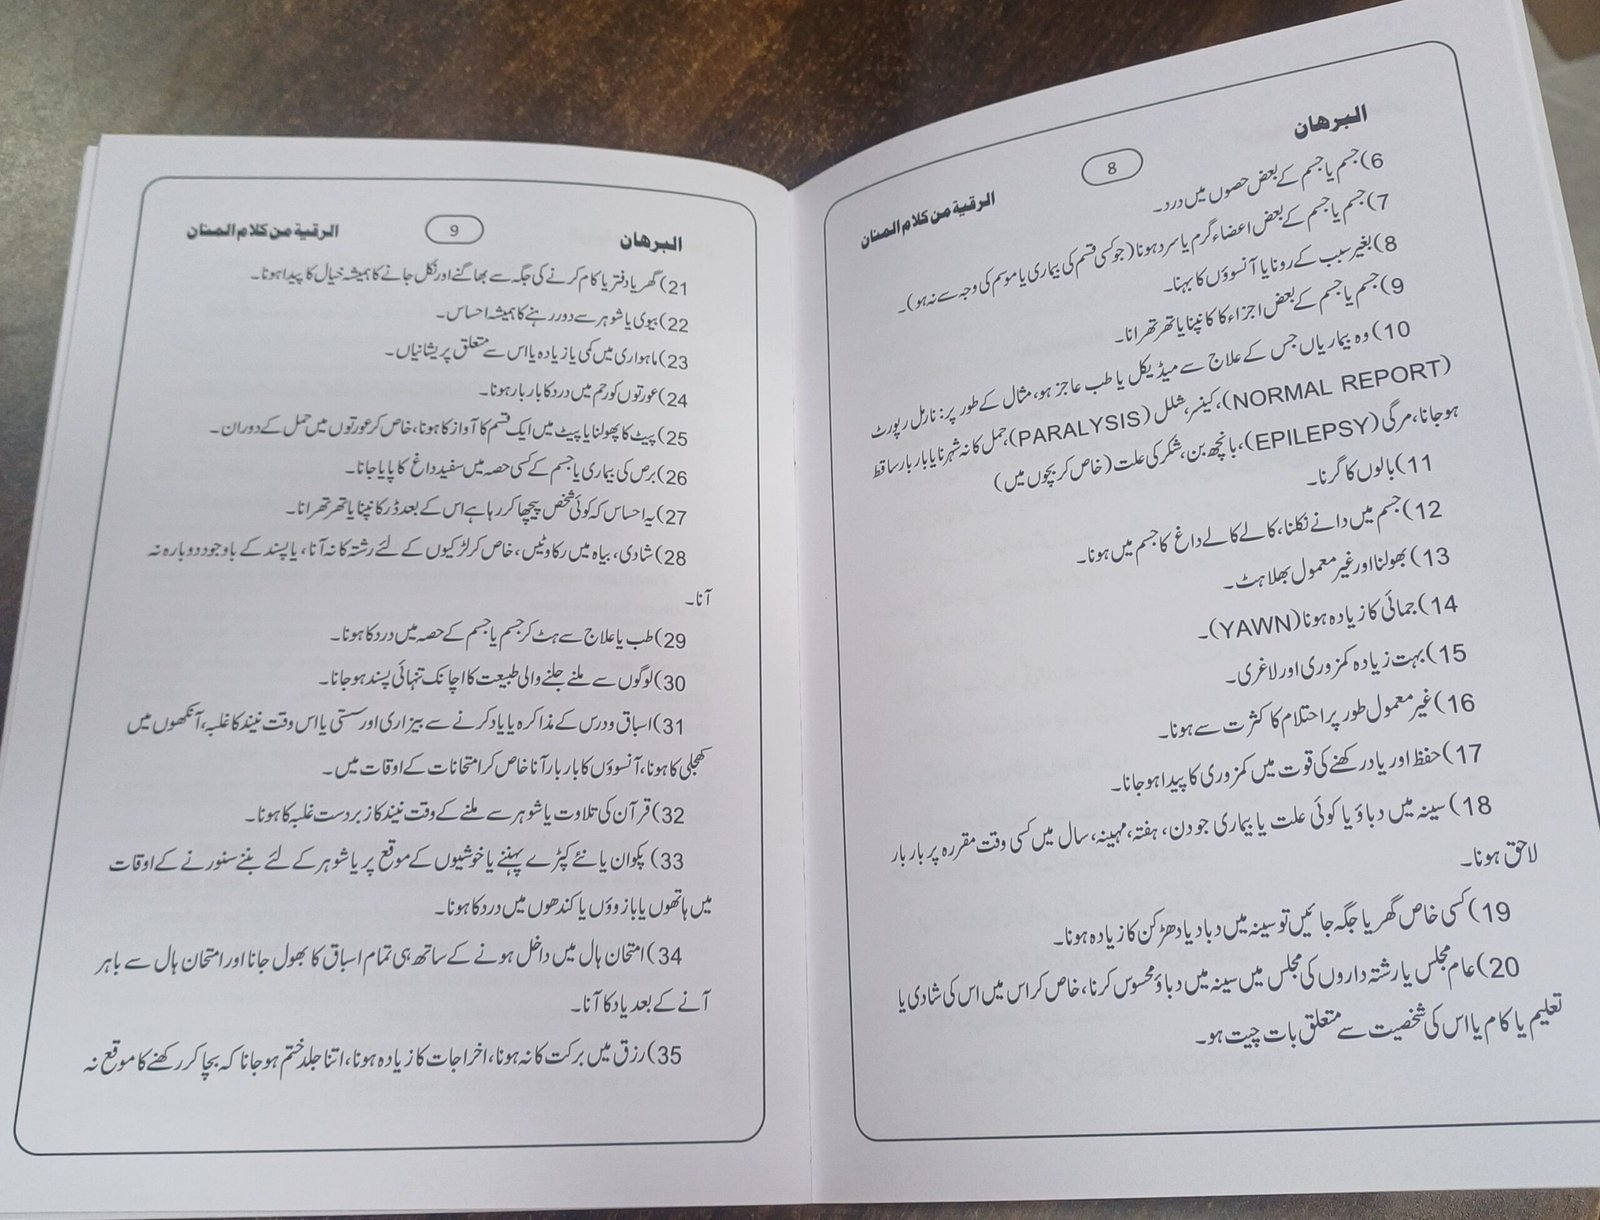 البرهان
8
الرقية من كلام المنان
6) جسم یا جسم کے بعض حصوں میں درد۔
7) جسم یا جسم کے بعض اعضاء گرم یا سرد ہونا (جو کسی قسم کی بیماری یا موسم کی وجہ سے نہ ہو)۔
8) بغیر سبب کے رونا یا آنسوؤں کا بہنا۔
9) جسم یا جسم کے بعض اجزاء کا کانپنا یا تھرتھرانا۔
10) وہ بیماریاں جس کے علاج سے میڈیکل یا طب عاجز ہو، مثال کے طور پر: نارمل رپورٹ
(NORMAL REPORT)، کینسر، شلل (PARALYSIS)، حمل کا نہ ٹہرنا یا بار بار ساقط
ہوجانا، مرگی (EPILEPSY)، بانچھ بن، شکر کی علت (خاص کر بچوں میں)
11) بالوں کا گرنا۔
12) جسم میں دانے نکلنا، کالے کالے داغ کا جسم میں ہونا۔
13) بھولنا اور غیر معمول بھلاہٹ۔
14) جمائی کا زیادہ ہونا (YAWN)۔
15) بہت زیادہ کمزوری اور لاغری۔
16) غیر معمول طور پر احتلام کا کثرت سے ہونا۔
17) حفظ اور یاد رکھنے کی قوت میں کمزوری کا پیدا ہوجانا۔
18) سینہ میں دباؤ یا کوئی علت یا بیماری جو دن، ہفتہ، مہینہ، سال میں کسی وقت مقررہ پر بار بار
لاحق ہونا۔
19) کسی خاص گھر یا جگہ جائیں تو سینہ میں دباد یا دھڑکن کا زیادہ ہونا۔
20) عام مجلس یا رشتہ داروں کی مجلس میں سینہ میں دباؤ محسوس کرنا، خاص کر اس میں اس کی شادی یا
تعلیم یا کام یا اس کی شخصیت سے متعلق بات چیت ہو۔
البرهان
9
الرقية من كلام المنان
21) گھر یا دفتر یا کام کرنے کی جگہ سے بھاگنے اور نکل جانے کا ہمیشہ خیال کا پیدا ہونا۔
22) بیوی یا شوہر سے دور رہنے کا ہمیشہ احساس۔
23) ماہواری میں کمی یا زیادہ یا اس سے متعلق پریشانیاں۔
24) عورتوں کو رحم میں درد کا بار بار ہونا۔
25) پیٹ کا پھولنا یا پیٹ میں ایک قسم کا آواز کا ہونا، خاص کر عورتوں میں حمل کے دوران۔
26) برص کی بیماری یا جسم کے کسی حصہ میں سفید داغ کا پایا جانا۔
27) یہ احساس کہ کوئی شخص پیچھا کر رہا ہے اس کے بعد ڈر کانپنا یا تھرتھرانا۔
28) شادی، بیاہ میں رکاوٹیں، خاص کر لڑکیوں کے لئے رشتہ کا نہ آنا، یا پسند کے باوجود دوبارہ نہ
آنا۔
29) طب یا علاج سے ہٹ کر جسم یا جسم کے حصہ میں درد کا ہونا۔
30) لوگوں سے ملنے جلنے والی طبیعت کا اچانک تنہائی پسند ہوجانا۔
31) اسباق و درس کے مذاکرہ یا یاد کرنے سے بیزاری اور سستی یا اس وقت نیند کا غلبہ، آنکھوں میں
کھجلی کا ہونا، آنسوؤں کا بار بار آنا خاص کر امتحانات کے اوقات میں۔
32) قرآن کی تلاوت یا شوہر سے ملنے کے وقت نیند کا زبردست غلبہ کا ہونا۔
33) پکوان یا نئے کپڑے پہننے یا خوشیوں کے موقع پر یا شوہر کے لئے بننے سنورنے کے اوقات
میں ہاتھوں یا بازوؤں یا کندھوں میں درد کا ہونا۔
34) امتحان ہال میں داخل ہونے کے ساتھ ہی تمام اسباق کا بھول جانا اور امتحان ہال سے باہر
آنے کے بعد یاد کا آنا۔
35) رزق میں برکت کا نہ ہونا، اخراجات کا زیادہ ہونا، اتنا جلد ختم ہوجانا کہ بچا کر رکھنے کا موقع نہ